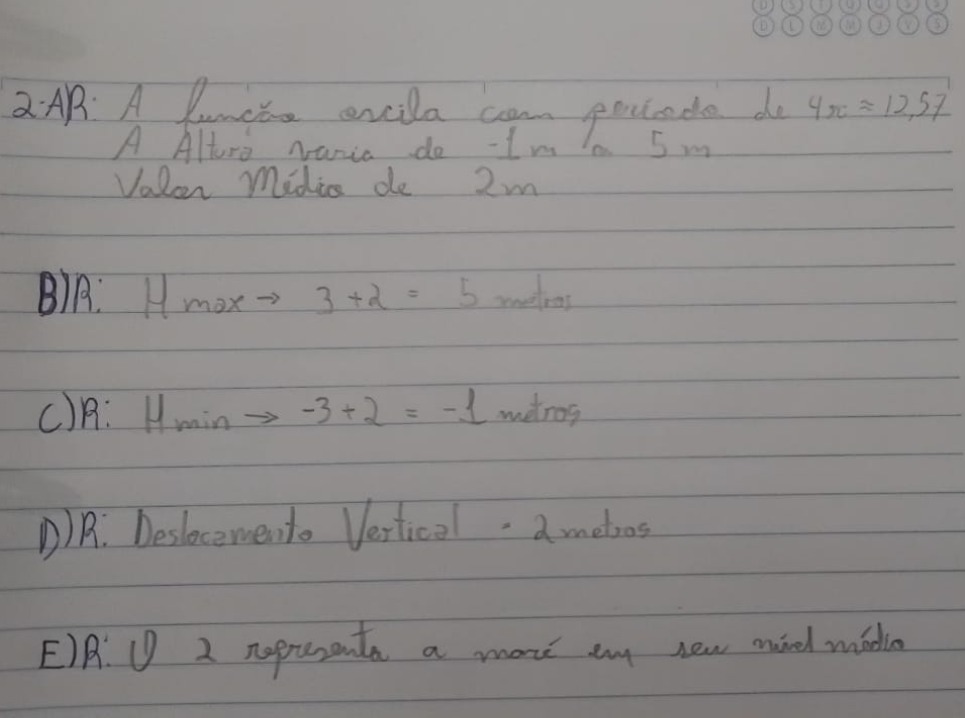 D S T Q Q S S
D L M M J V S
2-A)R: A função oscila com período de 4π ≈ 12,57
A Altura varia de -1m a 5m
Valor Médio de 2m
B)R: H max → 3+2 = 5 metros
C)R: H min → -3+2 = -1 metros
D)R: Deslocamento Vertical = 2 metros
E)R: O 2 representa a maré em seu nível médio